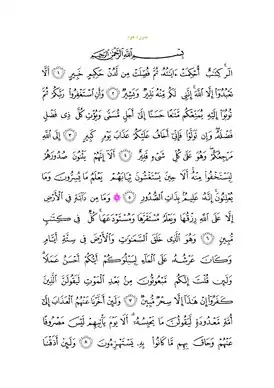 سورة هود
بِسْمِ اللَّهِ الرَّحْمَٰنِ الرَّحِيمِ
الٓر ۚ كِتَٰبٌ أُحْكِمَتْ ءَايَٰتُهُۥ ثُمَّ فُصِّلَتْ مِن لَّدُنْ حَكِيمٍ خَبِيرٍ ١ أَلَّا
تَعْبُدُوٓا۟ إِلَّا ٱللَّهَ ۚ إِنَّنِى لَكُم مِّنْهُ نَذِيرٌ وَبَشِيرٌ ٢ وَأَنِ ٱسْتَغْفِرُوا۟ رَبَّكُمْ ثُمَّ
تُوبُوٓا۟ إِلَيْهِ يُمَتِّعْكُم مَّتَٰعًا حَسَنًا إِلَىٰٓ أَجَلٍ مُّسَمًّى وَيُؤْتِ كُلَّ ذِى فَضْلٍ
فَضْلَهُۥ ۖ وَإِن تَوَلَّوْا۟ فَإِنِّىٓ أَخَافُ عَلَيْكُمْ عَذَابَ يَوْمٍ كَبِيرٍ ٣ إِلَى ٱللَّهِ
مَرْجِعُكُمْ ۖ وَهُوَ عَلَىٰ كُلِّ شَىْءٍ قَدِيرٌ ٤ أَلَآ إِنَّهُمْ يَثْنُونَ صُدُورَهُمْ
لِيَسْتَخْفُوا۟ مِنْهُ ۚ أَلَا حِينَ يَسْتَغْشُونَ ثِيَابَهُمْ يَعْلَمُ مَا يُسِرُّونَ وَمَا
يُعْلِنُونَ ۚ إِنَّهُۥ عَلِيمٌۢ بِذَاتِ ٱلصُّدُورِ ٥ وَمَا مِن دَآبَّةٍ فِى ٱلْأَرْضِ
إِلَّا عَلَى ٱللَّهِ رِزْقُهَا وَيَعْلَمُ مُسْتَقَرَّهَا وَمُسْتَوْدَعَهَا ۚ كُلٌّ فِى كِتَٰبٍ
مُّبِينٍ ٦ وَهُوَ ٱلَّذِى خَلَقَ ٱلسَّمَٰوَٰتِ وَٱلْأَرْضَ فِى سِتَّةِ أَيَّامٍ
وَكَانَ عَرْشُهُۥ عَلَى ٱلْمَآءِ لِيَبْلُوَكُمْ أَيُّكُمْ أَحْسَنُ عَمَلًا ۗ
وَلَئِن قُلْتَ إِنَّكُم مَّبْعُوثُونَ مِنۢ بَعْدِ ٱلْمَوْتِ لَيَقُولَنَّ ٱلَّذِينَ
كَفَرُوٓا۟ إِنْ هَٰذَآ إِلَّا سِحْرٌ مُّبِينٌ ٧ وَلَئِنْ أَخَّرْنَا عَنْهُمُ ٱلْعَذَابَ إِلَىٰٓ
أُمَّةٍ مَّعْدُودَةٍ لَّيَقُولُنَّ مَا يَحْبِسُهُۥٓ ۗ أَلَا يَوْمَ يَأْتِيهِمْ لَيْسَ مَصْرُوفًا
عَنْهُمْ وَحَاقَ بِهِم مَّا كَانُوا۟ بِهِۦ يَسْتَهْزِءُونَ ٨ وَلَئِنْ أَذَقْنَا